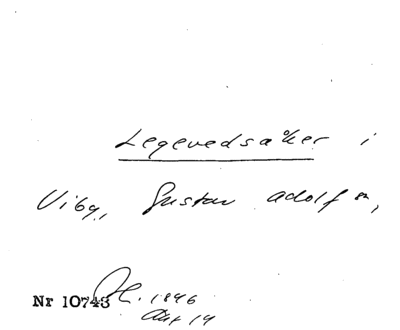 Legevedsåker i
Viby, Gustav Adolf sn,
Nr 10743 H. 1846
Akt 14